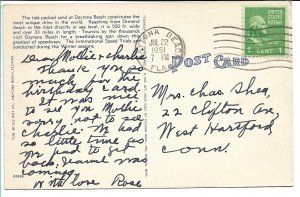 The tide packed sand at Daytona Beach constitutes the
most unique drive in the world. Reaching from Ormond
Beach to the Inlet directly at sea level, it is 500 ft. wide
and over 20 miles in length. Tourists by the thousands
visit Daytona Beach, for a breathtaking spin down the
greatest of speedways. The International Speed Trials are
conducted during the Winter season.
DAYTONA BEACH
JUL 22
7 PM
1951
FLA.
1 CENT 1
POST CARD
Dear Mollie & Charlie
Thank you so
much for the
birthday card.
It was nice
Mollie
sorry not to see
Charlie. We had
so little time as
we had to get
back, Jeanne was
coming.
With love Rose
Mrs. Chas Shea
22 Clifton Ave
West Hartford
Conn.